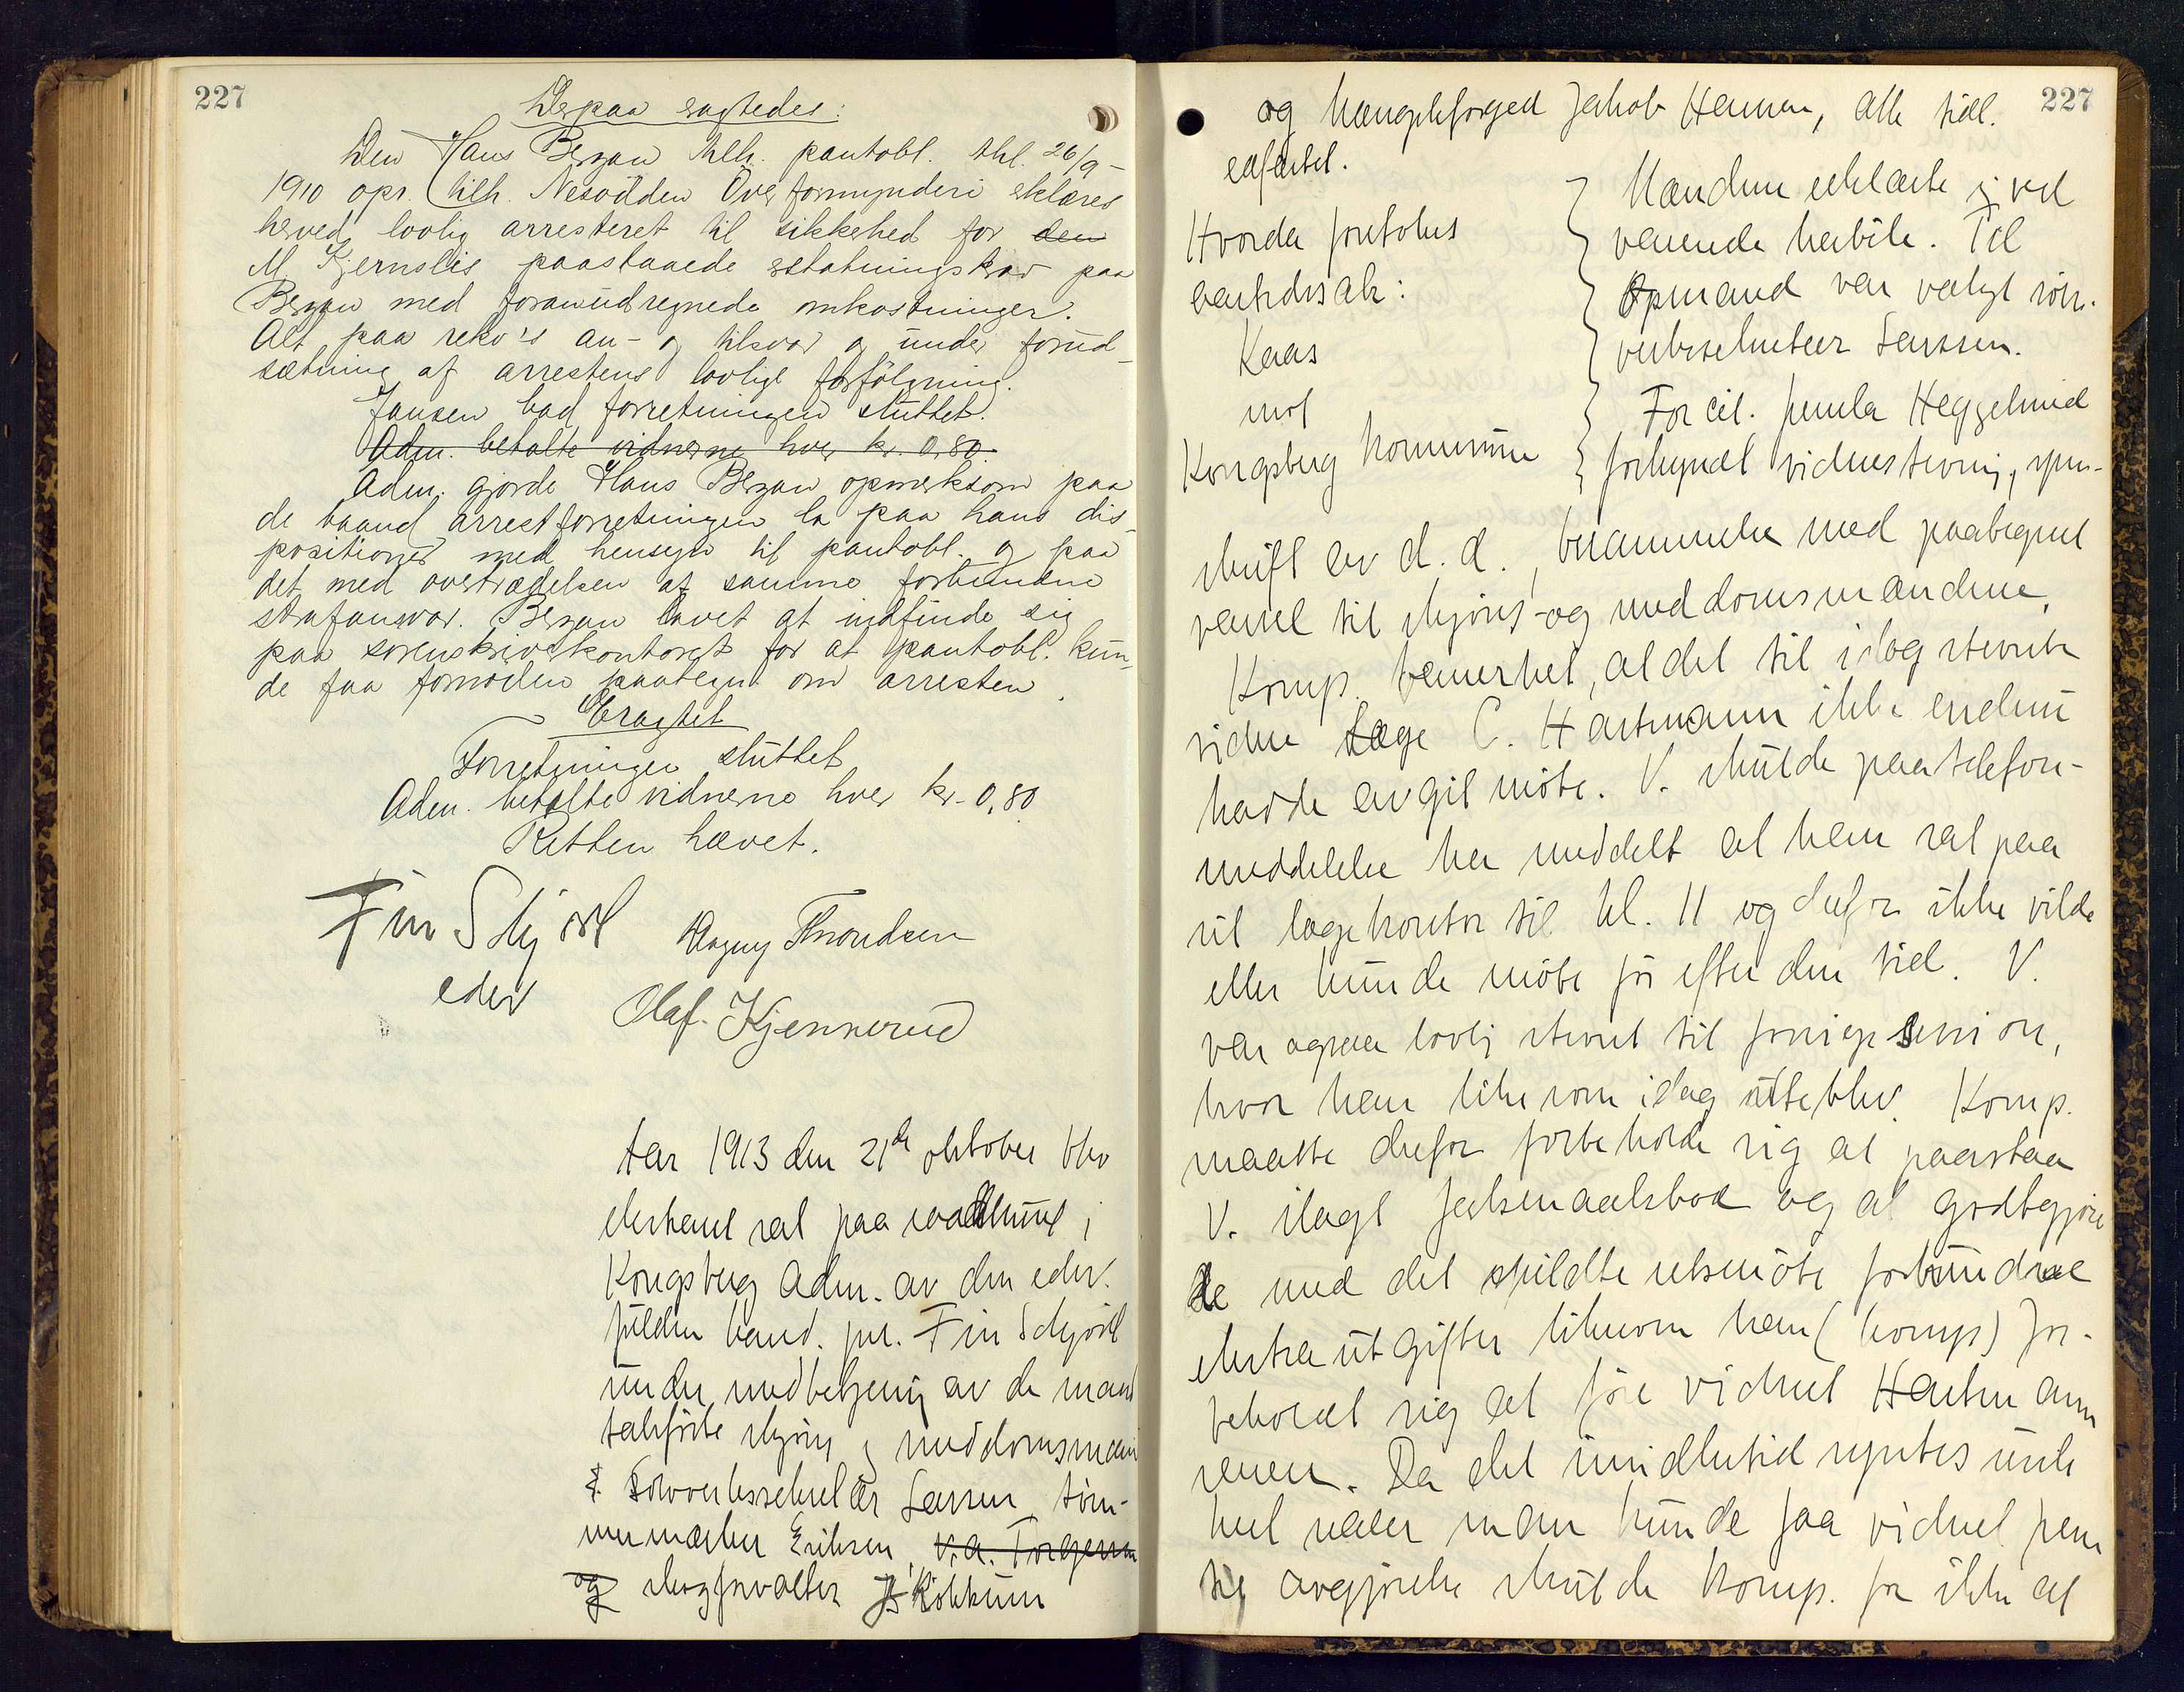 227
Derpaa eragtedes:
Den Hans Bergan tilh. pantobl. thl. 26/9-
1910 opr. tilh. Nesodden Overformynderi erklæres
herved lovlig arresteret til sikkerhed for den
M. Kjernslis paastaaede erstatningskrav paa
Bergan med foranudregnede omkostninger.
Alt paa rekv's an- og tilsvar og under forud-
sætning af arrestens lovlige forfölgning.
Jansen bad forretningen sluttet.
Adm. betalte vidnerne hver kr. 0,80.
Adm. gjorde Hans Bergan opmerksom paa
de baand arrestforretningen la paa hans dis-
positioner med hensyn til pantobl. og paa
det med overtrædelsen af samme forbundne
strafansvar. Bergan lovet at indfinde sig
paa sorenskriverkontoret for at pantobl. kun-
de faa fornöden paategn. om arresten.
Eragtet
Forretningen sluttet
Adm. betalte vidnerne hver kr. 0,80
Retten hævet.
Fin Schjöll
edsv
Dagny Throndsen
Olaf. Kjennerud
Aar 1913 den 21de oktober blev
ekstraret sat paa raadhuset i
Kongsberg Adm. av den edsv.
fuldm cand. jur. Fin Schjöll
under medbetjening av de mand
talsförte skjöns og meddomsmænd
Sölvverkssekretær Larsen, töm-
mermerker Eriksen, V.A. Torgersen
og skogforvalter Kölkinn
227
og Hængsleforged Jakob Hansen, alle tidl.
edfæstet.
Hvorda foretokes
vandsak:
Kaas
mot
Kongsberg kommune
Mændene erklærte sig vel
værende habile. Til
Opmand var valgt sölv-
verkssekretær Larssen.
For cit. Heggelund
vidnestevning, gjen-
skrift av d. d., berammelse med paategnet
varsel til skjöns- og meddomsmændene.
Komp. bemerket, at det til idag stevnte
vidne læge C. Hartmann ikke endnu
hadde avgit möte. V. skulde paa telefon-
meddelelse ha meddelt at han sat paa
sit lægekontor til kl. 11 og derfor ikke vilde
eller kunde möte för efter den tid. V.
var ogsaa lovlig stevnet til forrige session,
hvor han likesom idag uteblev. Komp.
maatte derfor forbeholde sig at paastaa
V. ilagt faldsmaalsbod og at godtgjöre
de med det spildte retsmöte forbundne
ekstrautgifter likesom han (komp) for-
beholdt sig at före vidnet Hartmann
senere. Da det imidlertid syntes usik-
kert naar man kunde faa vidnet frem
til avgjörelse skulde komp. for ikke at